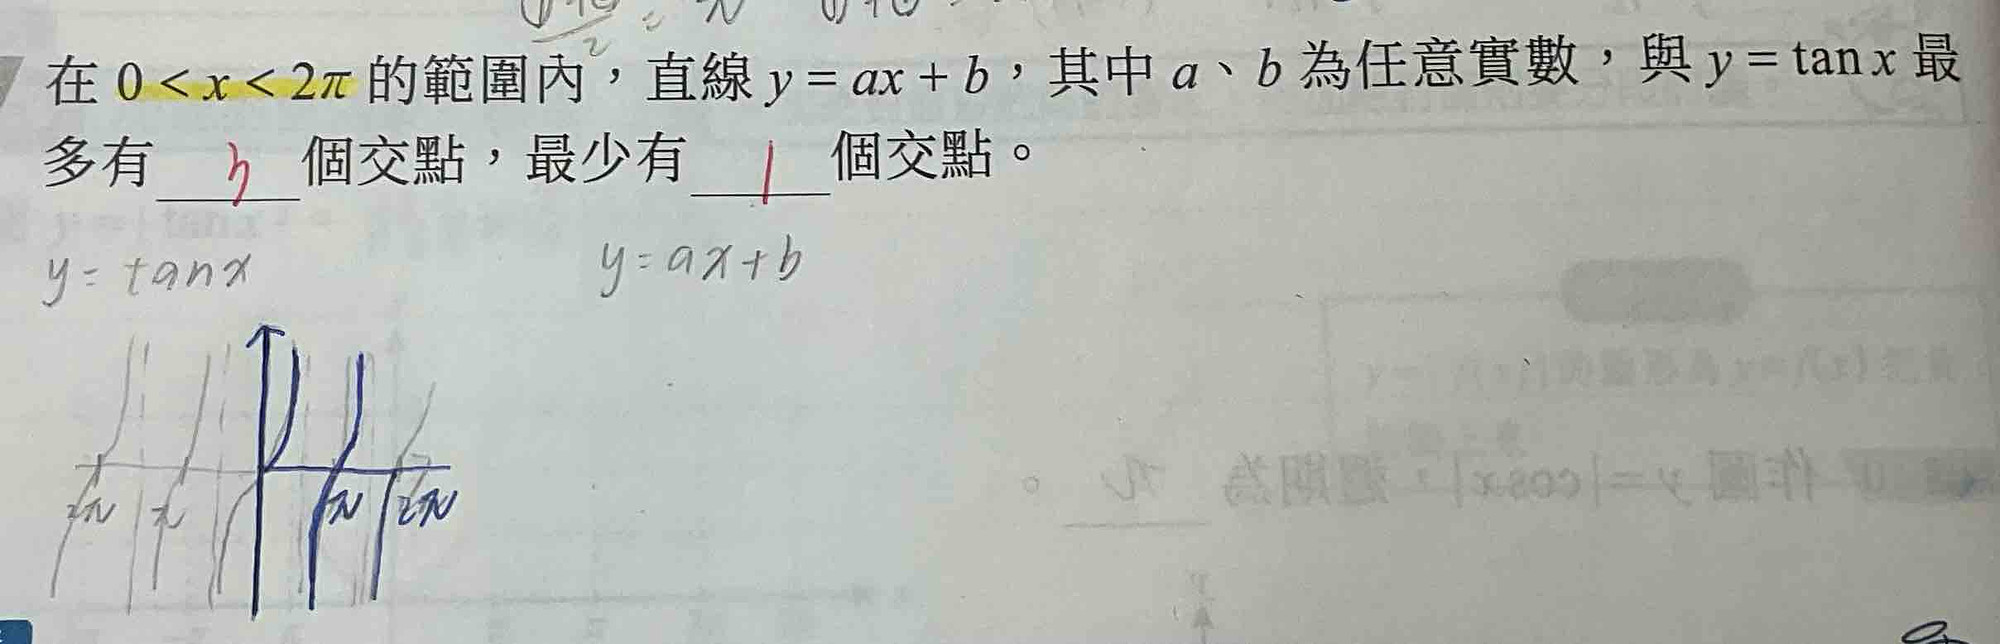 在 0 < x < 2π 的範圍內，直線 y = ax + b，其中 a、b 為任意實數，與 y = tan x 最
多有 5 個交點，最少有 1 個交點。
y = tanx
y = ax + b
π 2π